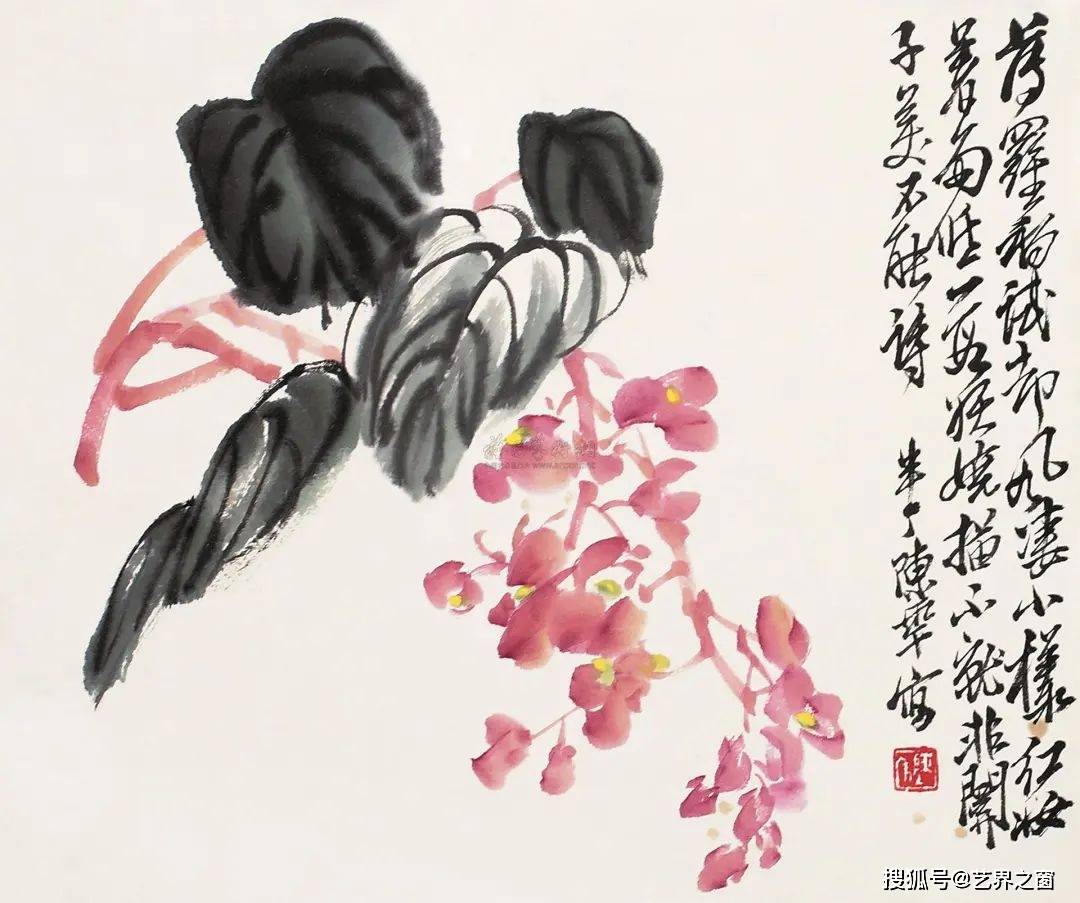 薄羅初試却風凄小樣紅妝
着雨低一段妖嬈描不就非關
子美不能詩 半丁陳年寫
搜狐号@艺界之窗